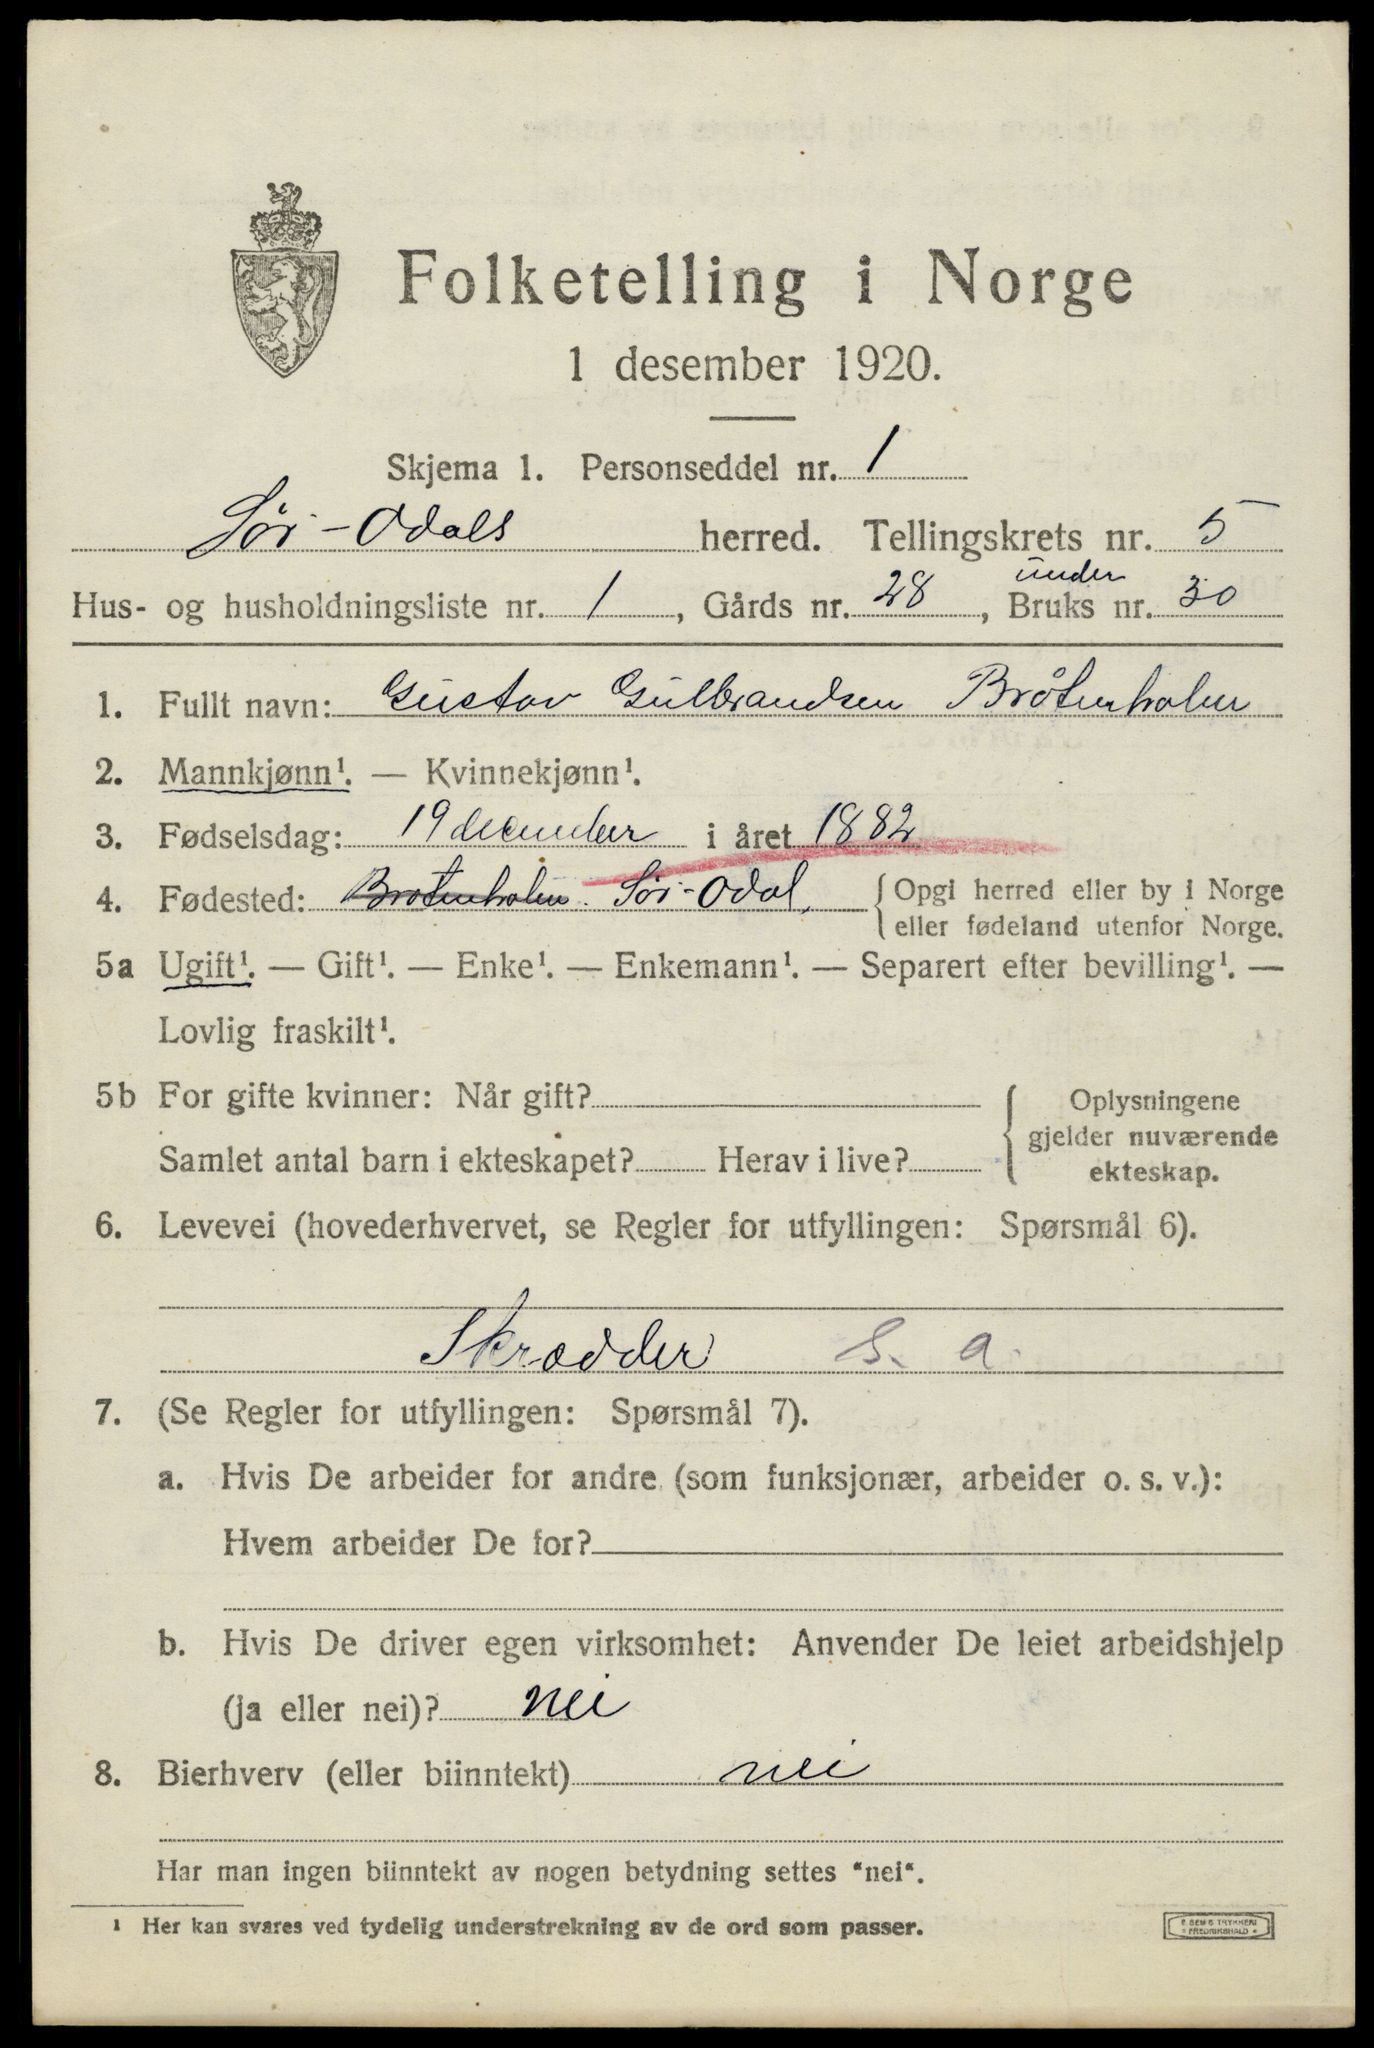 Folketelling i Norge
1 desember 1920.
Skjema 1. Personseddel nr. 1
Sör-Odals herred. Tellingskrets nr. 5
under
Hus- og husholdningsliste nr. 1, Gårds nr. 28, Bruks nr. 30
1. Fullt navn: Gustav Gulbrandsen Bråtenholen
2. Mannkjønn¹. — Kvinnekjønn¹.
3. Fødselsdag: 19 december i året 1882
4. Fødested: Brotenholen. Sör-Odal, { Opgi herred eller by i Norge
eller fødeland utenfor Norge.
5a Ugift¹. — Gift¹. — Enke¹. — Enkemann¹. — Separert efter bevilling¹. —
Lovlig fraskilt¹.
5b For gifte kvinner: Når gift? { Oplysningene
gjelder nuværende
Samlet antal barn i ekteskapet? Herav i live?
ekteskap.
6. Levevei (hovederhvervet, se Regler for utfyllingen: Spørsmål 6).
Skrædder S. a.
7. (Se Regler for utfyllingen: Spørsmål 7).
a. Hvis De arbeider for andre (som funksjonær, arbeider o. s. v.):
Hvem arbeider De for?
b. Hvis De driver egen virksomhet: Anvender De leiet arbeidshjelp
(ja eller nei)? nei
8. Bierhverv (eller biinntekt) nei
Har man ingen biinntekt av nogen betydning settes "nei".
¹ Her kan svares ved tydelig understrekning av de ord som passer.
E. SEM'S TRYKKERI
FREDRIKSHALD